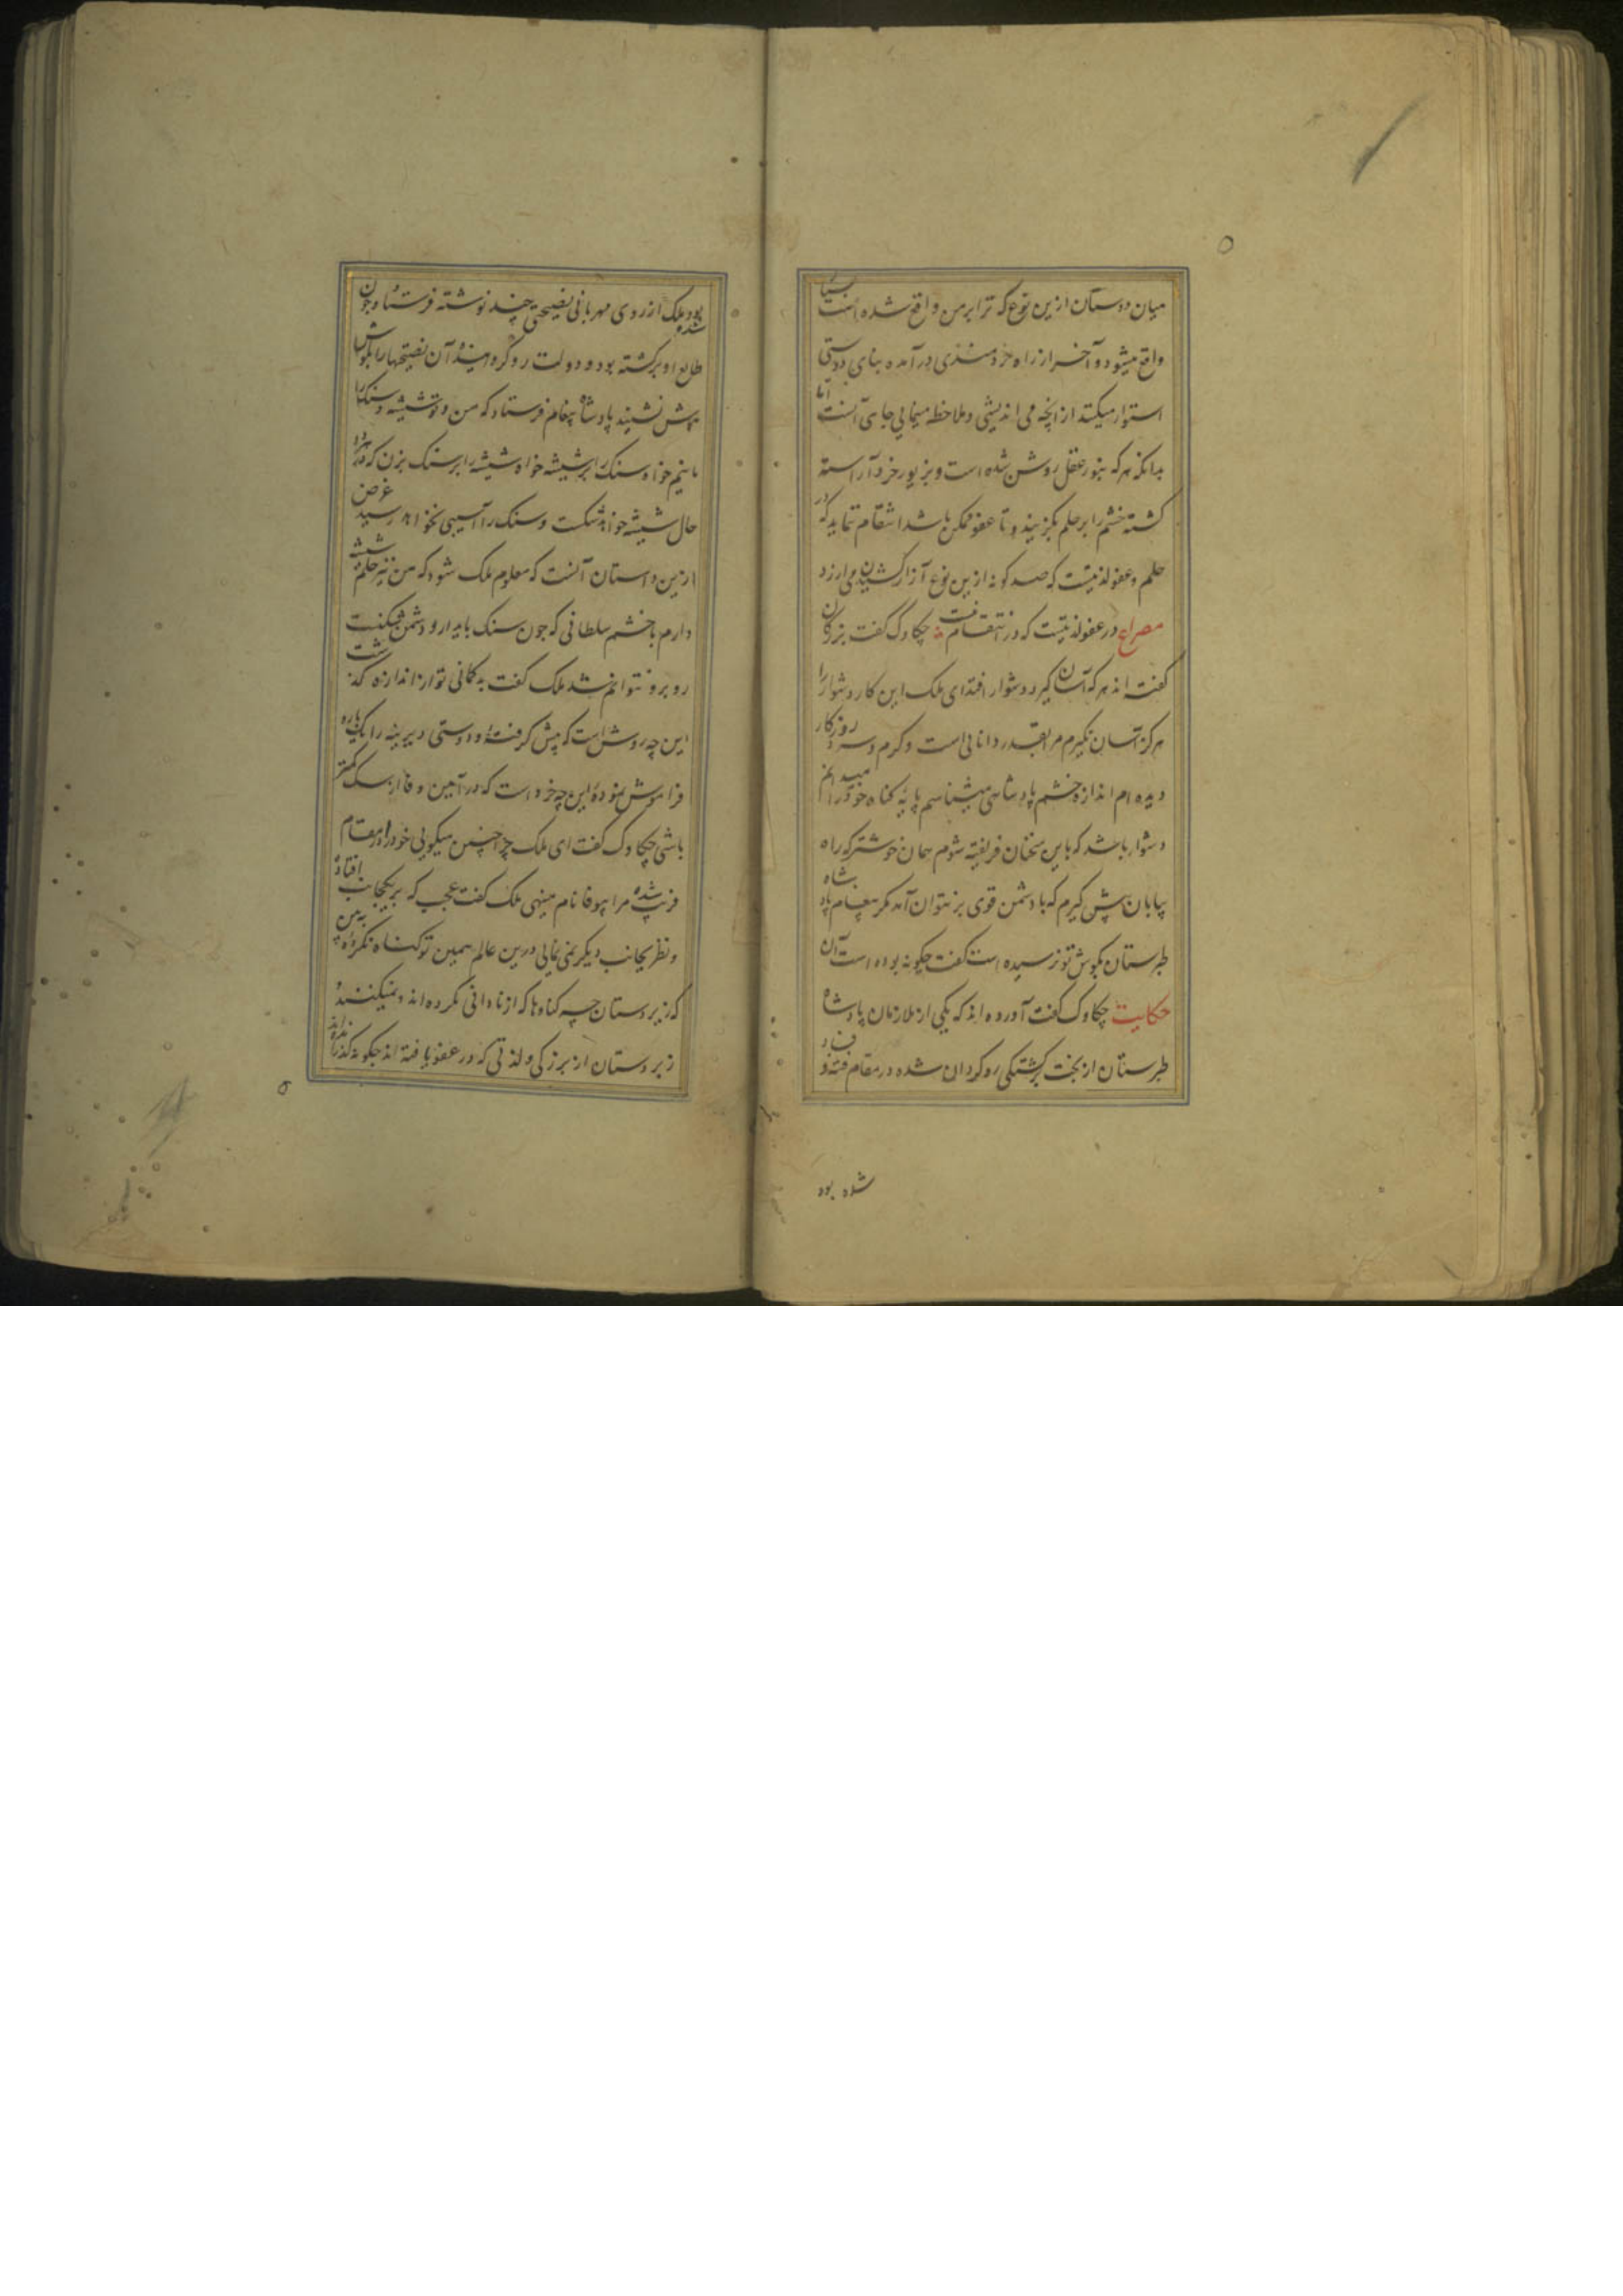 میان دوستان ازین نوع که ترا بر من واقع شده است بسیار
واقع میشود و آخر از راه خردمندی در آمده بنای دوستی
استوار میکنند از انچه می اندیشی و ملاحظه مینمایی جای آنست اما
بدانکه هر که بنور عقل روشن شده است و بزیور خرد آراسته
کشته خشم را بر حلم نکزیند و تا عفو ممکن باشد انتقام ننماید که در
حلم و عفو لذتیست که صد کونه ازین نوع آزار کشیدن می ارزد
مصراع در عفو لذتیست که در انتقام نیست چکاوک گفت بزرگان
گفته اند هر که آسان گیرد دشوار افتد ای ملک این کار دشوار را
هرگز آسان نگیرم مرا بقدر دانایی است و گرم و سرد روزکار
دیده ام اندازه خشم پادشاهی میشناسم پایه گناه خود را میدانم
دشوار باشد که باین سخنان فریفته شوم همان خوشتر که راه
بیابان پیش گیرم که با دشمن قوی بر نتوان آمد مگر پیغام پادشاه
طبرستان بگوش تو نرسیده است گفت چگونه بوده است آن
حکایت چکاوک گفت آورده اند که یکی از ملازمان پادشاه
طبرستان از بخت برگشتگی رو گردان شده در مقام فتنه و فساد
شده بود
شده بود ملک از روی مهربانی نصیحتی چند نوشته فرستاد و چون
طالع او برگشته بود و دولت رو گردانیده آن نصیحتها را بگوش
هوش نشنید پادشاه پیغام فرستاد که من و تو شیشه و سنک را
مانیم خواه سنک را بر شیشه خواه شیشه را بر سنک بزن که در هر دو
حال شیشه خواهد شکست و سنک را آسیبی نخواهد رسید غرض
ازین داستان آنست که معلوم ملک شود که من نیز حکم شیشه
دارم با خشم سلطانی که چون سنک پایدار و دشمن شکنست
روبرو نتوانم شد ملک گفت بدگمانی تو از اندازه گذشت
این چه روش است که پیش گرفته و دوستی دیرینه را یکباره
فراموش نموده این چه خرد است که در آیین وفا از سک کمتر
باشی چکاوک گفت ای ملک چرا چنین میگویی خود را در مقام
فریب شده مرا بیوفا نام مینهی ملک گفت عجب که بر یکجانب افتاده
و نظر بجانب دیگر نمی نمایی درین عالم همین تو گناه نکرده به بین
که زیردستان چه گناهها که از نادانی نکرده اند و نمیکنند و
زبردستان از بزرگی و لذتی که در عفو یافته اند چگونه گذرانیده اند